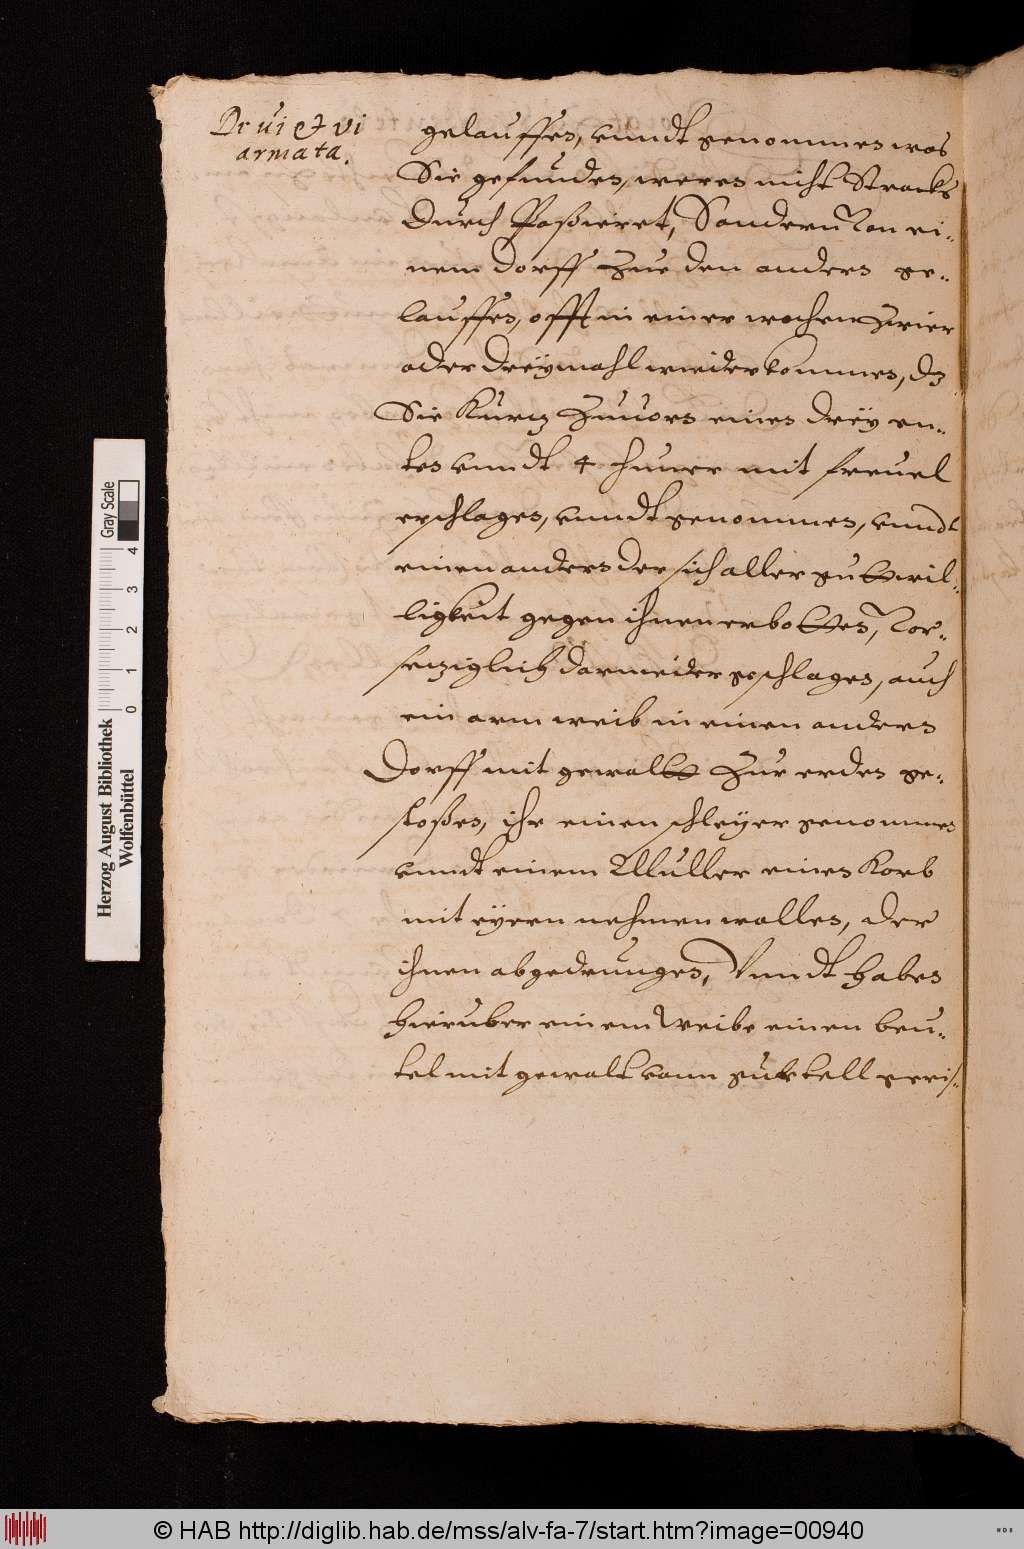 De vi et vi
armata.
gelauffen, vnndt genommen was
Sie gefunden, weren nicht Stracks
Durch Paßieret, Sondern Von ei-
nem dorff Zue den andern ge-
lauffen, offt in einer wochen Zwier
oder dreÿmahl wieder kommen, dz
Sie Kurtz Zuuorn einen dreÿ en-
ten vnndt 4 huner mit freuel
erschlagen, vnndt genommen, vnndt
einen andern der sich aller gutwil-
ligkeit gegen ihnen erbotten, Vor-
setziglich darnieder geschlagen, auch
ein arm weib in einen andern
Dorff mit gewalt Zur erden ge-
stoßen, ihr einen schleÿer genommen
vnndt einem Muller einen Korb
mit eÿern nehmen wollen, der
ihnen abgedrungen, Vnndt haben
hieruber einem Weibe einen beu-
tel mit gewalt vom gurtell geris-
Herzog August Bibliothek
Wolfenbüttel
0 1 2 3 4
Gray Scale
© HAB http://diglib.hab.de/mss/alv-fa-7/start.htm?image=00940